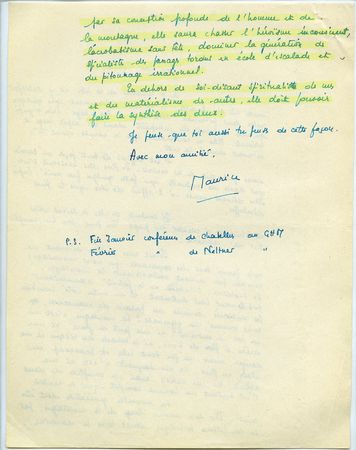 par sa connaissance profonde de l'homme et de
la montagne, elle saura chasser l'héroïsme inconscient,
l'acrobatisme sans but, dominer la génération de
spécialistes des fanas en école d'escalade et
du pitonnage irrationnel.
En dehors de soi-disant spiritualité de uns
et du matérialisme des autres, elle doit pouvoir
faire la synthèse des deux.
Je pense que toi aussi tu penses de cette façon.
Avec mon amitié.
Maurice
P.S. Fin Janvier conférence de Chatellus au GHM
Février " de Neltner "